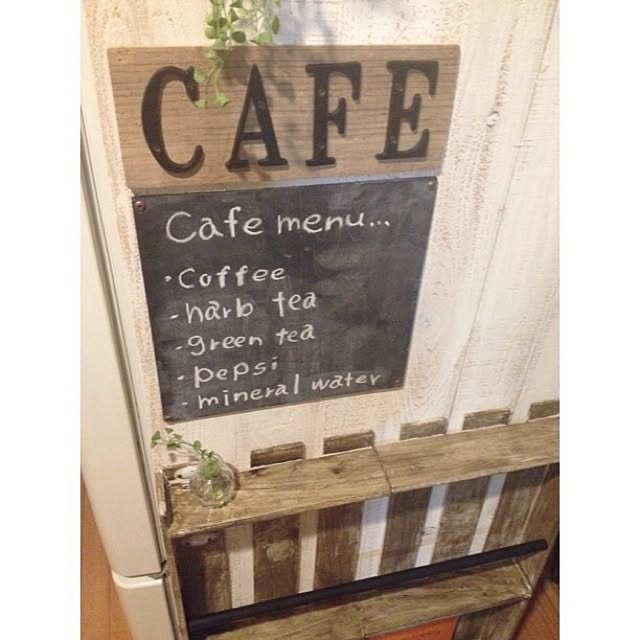 CAFE
Cafe menu...
·Coffee
-harb tea
-green tea
·pepsi
-mineral water